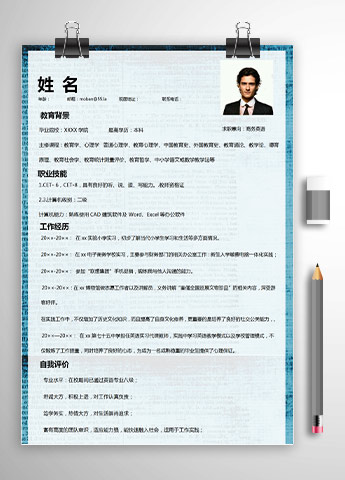 姓 名
年龄： 邮箱：moban@58.la 现居地址： 联系电话：
求职意向：商务英语
教育背景
毕业院校：XXXX 学院 最高学历：本科
主修课程：教育学、心理学 普通心理学、教育心理学、中国教育史、外国教育史、教育通论、教学论、德育
原理、教育社会学、教育统计测量评价、教育哲学、中小学语文或数学教学法等
职业技能
1.CET-6，CET-8，具有良好的听、说、读、写能力。,教师资格证
2.2计算机级别：二级
计算机能力：熟练使用 CAD 建筑软件及 Word、Excel 等办公软件
工作经历
20××-20××： 在 xx 实验小学实习，初步了解当代小学生学习和生活等多方面情况。
20××-20××： 在 xx 电子商务学校实习，主要参与财务部门的相关办公室工作
20××-20××： 参加“联想集团”手机促销，锻炼我与他人沟通的能力。
20××-20××：在 xx 博物馆做志愿工作者以及讲解员，义务讲解
在实践工作中，不仅增加了历史文化知识，而且提高了自身文化修养，更重要的是培养了良好的社交公关能力，。
20××—20××： 在 xx 第七十五中学担任英语实习代课教师，实施中学习英语教学模式以及学校管理模式，不
仅锻炼了工作质量，同时培养了良好的心态，为成为一名成熟稳重的毕业生提供了心理保证。
自我评价
专业水平：在校期间已通过英语专业八级；
坦诚大方，积极上进，对工作认真负责；
治学务实，热情大方，对生活崇尚追求；
富有高度的团队意识，适应能力强，能快速融入社会，适用于工作实践；